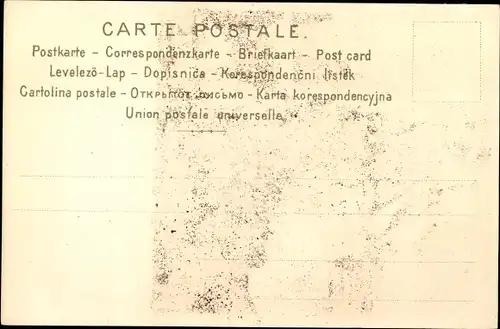 CARTE POSTALE.
Postkarte - Correspondenzkarte - Briefkaart - Post card
Levelező-Lap - Dopisnica - Korespondenční lístek
Cartolina postale - Открытое письмо - Karta korespondencyjna
Union postale universelle